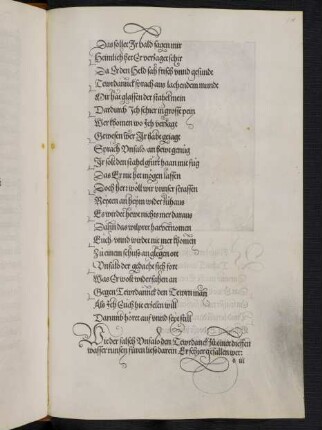 Das sollet Ir bald sagen mir
Heimlich seer Er versaget schir
Da Er den Held sach frisch vnnd gesunde
Tewrdannck sprach aus lachendem munde
Mir hat glassen der stahel mein
Dardurch Ich schier in grosse pein
Wer khomen wo Ich verzagt
Gewesen wer Ir habt gejagt
Sprach Vnfalo an bewegenūg
Ir solt den stahel gfürt haan mit fūg
Das Er nit het mögen lassen
Doch herr woll wir vnnser strassen
Reyten anheym wider zu haus
Es wirdet hewt nichts mer daraus
Dann das wilpret hat vernomen
Euch vnnd wirdet nit mer khomen
Zu einem schuss an gelegen ort
Vnfalo der gedacht sich fort
Was Er wolt wider fahen an
Gegen Tewrdannck den Tewrn man
Als Ich Euch hie erzelen will
Darumb höret auf vnnd seyt still
Wie der falsch Vnfalo den Tewrdanck zu einer dieffen
wasser runsen füeren liess darein Er schier gefallen wer: